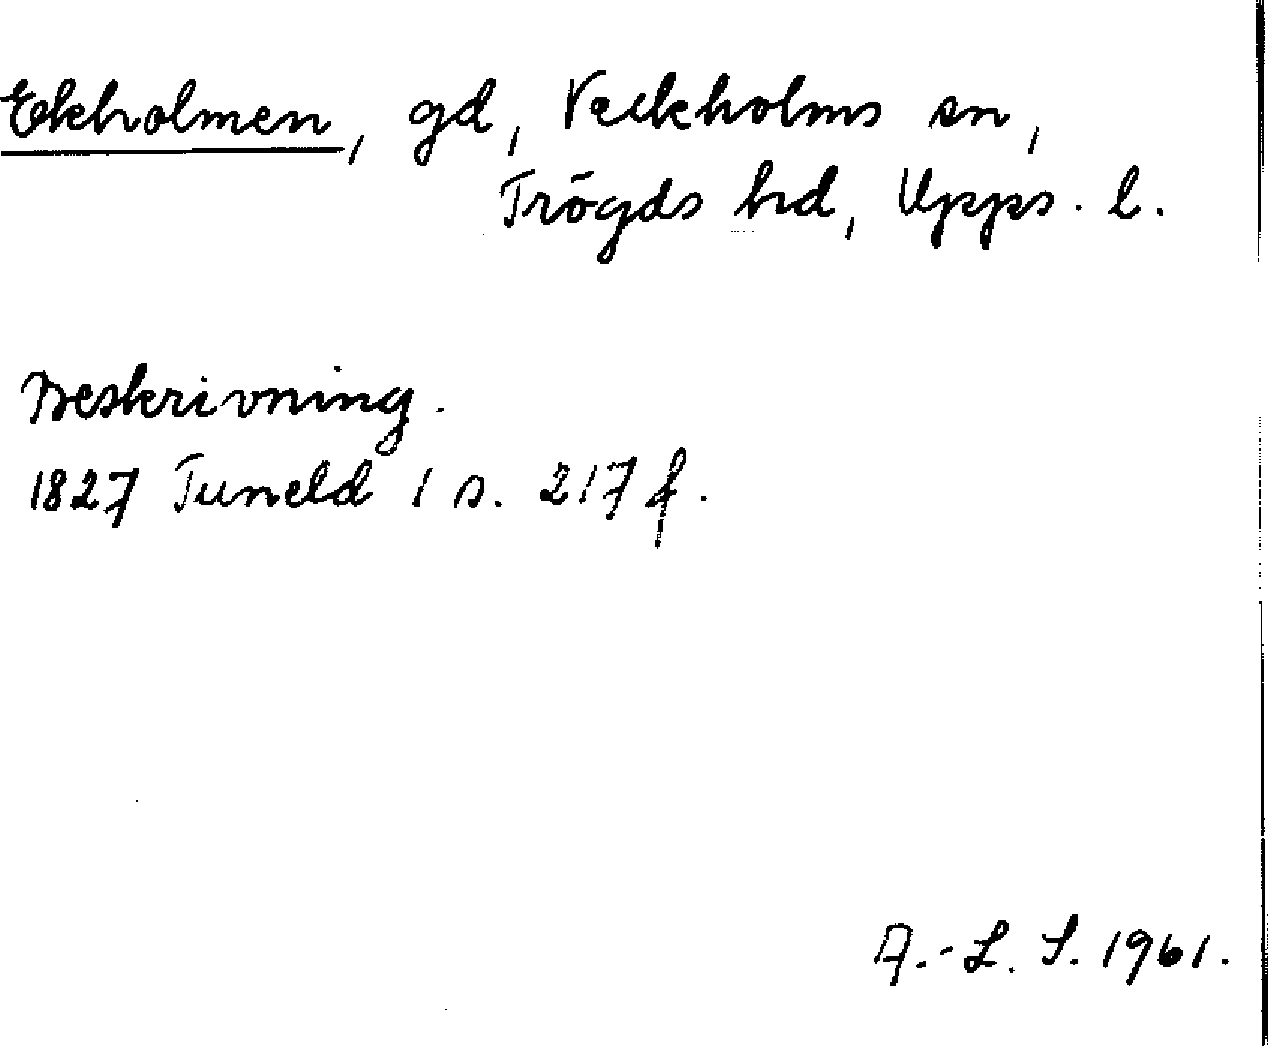 Ekholmen, gd, Veckholms sn,
Trögds hd, Upps. l.
Beskrivning.
1827 Tuneld 1 s. 217 f.
A.-L. S. 1961.